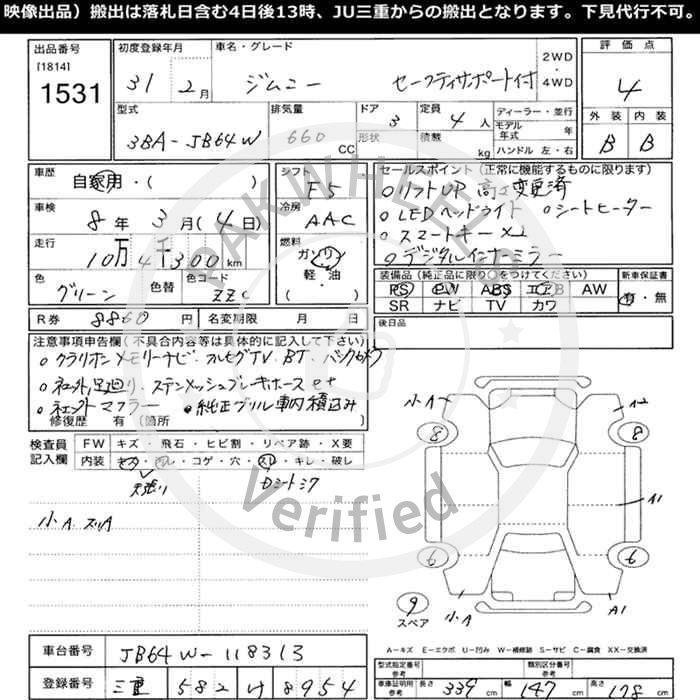 映像出品）搬出は落札日含む4日後13時、JU三重からの搬出となります。下見代行不可。
出品番号 初度登録年月 車名・グレード 2WD 評価点
[1814]
1531 31 2月 ジムニー セーフティサポート付 ・4WD 4
型式 排気量 ドア 定員 ディーラー・並行 外装 内装
3BA-JB64W 660 CC 3 形状 4人 積載 kg モデル年式 年 ハンドル 左・右 B B
車歴 自家用・( ) シフト F5 セールスポイント（正常に機能するものに限ります）
○リフトUP 高さ変更済
車検 8年3月(4日) 冷房 AAC ○LEDヘッドライト ○シートヒーター
○スマートキー×2
走行 10万4千300km 燃料 ガソリン ○デジタルインナーミラー
軽・油 ( )
色 グリーン 色替 色コード ZZC 装備品（純正品に限り○をつけてください） 新車保証書
PS PW ABS エアB AW 有・無
SR ナビ TV カワ
R券 8860円 名変期限 月 日 後日品
注意事項申告欄（不具合内容等は具体的に記入して下さい）
○クラリオンメモリーナビ、フルセグTV、BT、バックカメラ
○社外足廻り、ステンメッシュブレーキホースセット
○社外マフラー ●純正グリル車内積込み
修復歴 有（箇所
検査員記入欄 FW キズ・飛石・ヒビ割・リペア跡・X要
内装 キズ・汚レ・コゲ・穴・スレ・キレ・破し
天張り Dシートシワ
小A スリA
小A A2
8 8
A1
6 6
9
スペア 小A A1
A-キズ E-エクボ U-凹み W-補修跡 S-サビ C-腐食 XX-交換済
車台番号 JB64W-118313 型式指定番号 参考 類別区分番号
登録番号 三重 582 け 8954 車庫証明用 参考 長さ 339cm 幅 147cm 高さ 178cm
PAKWHEELS
Verified